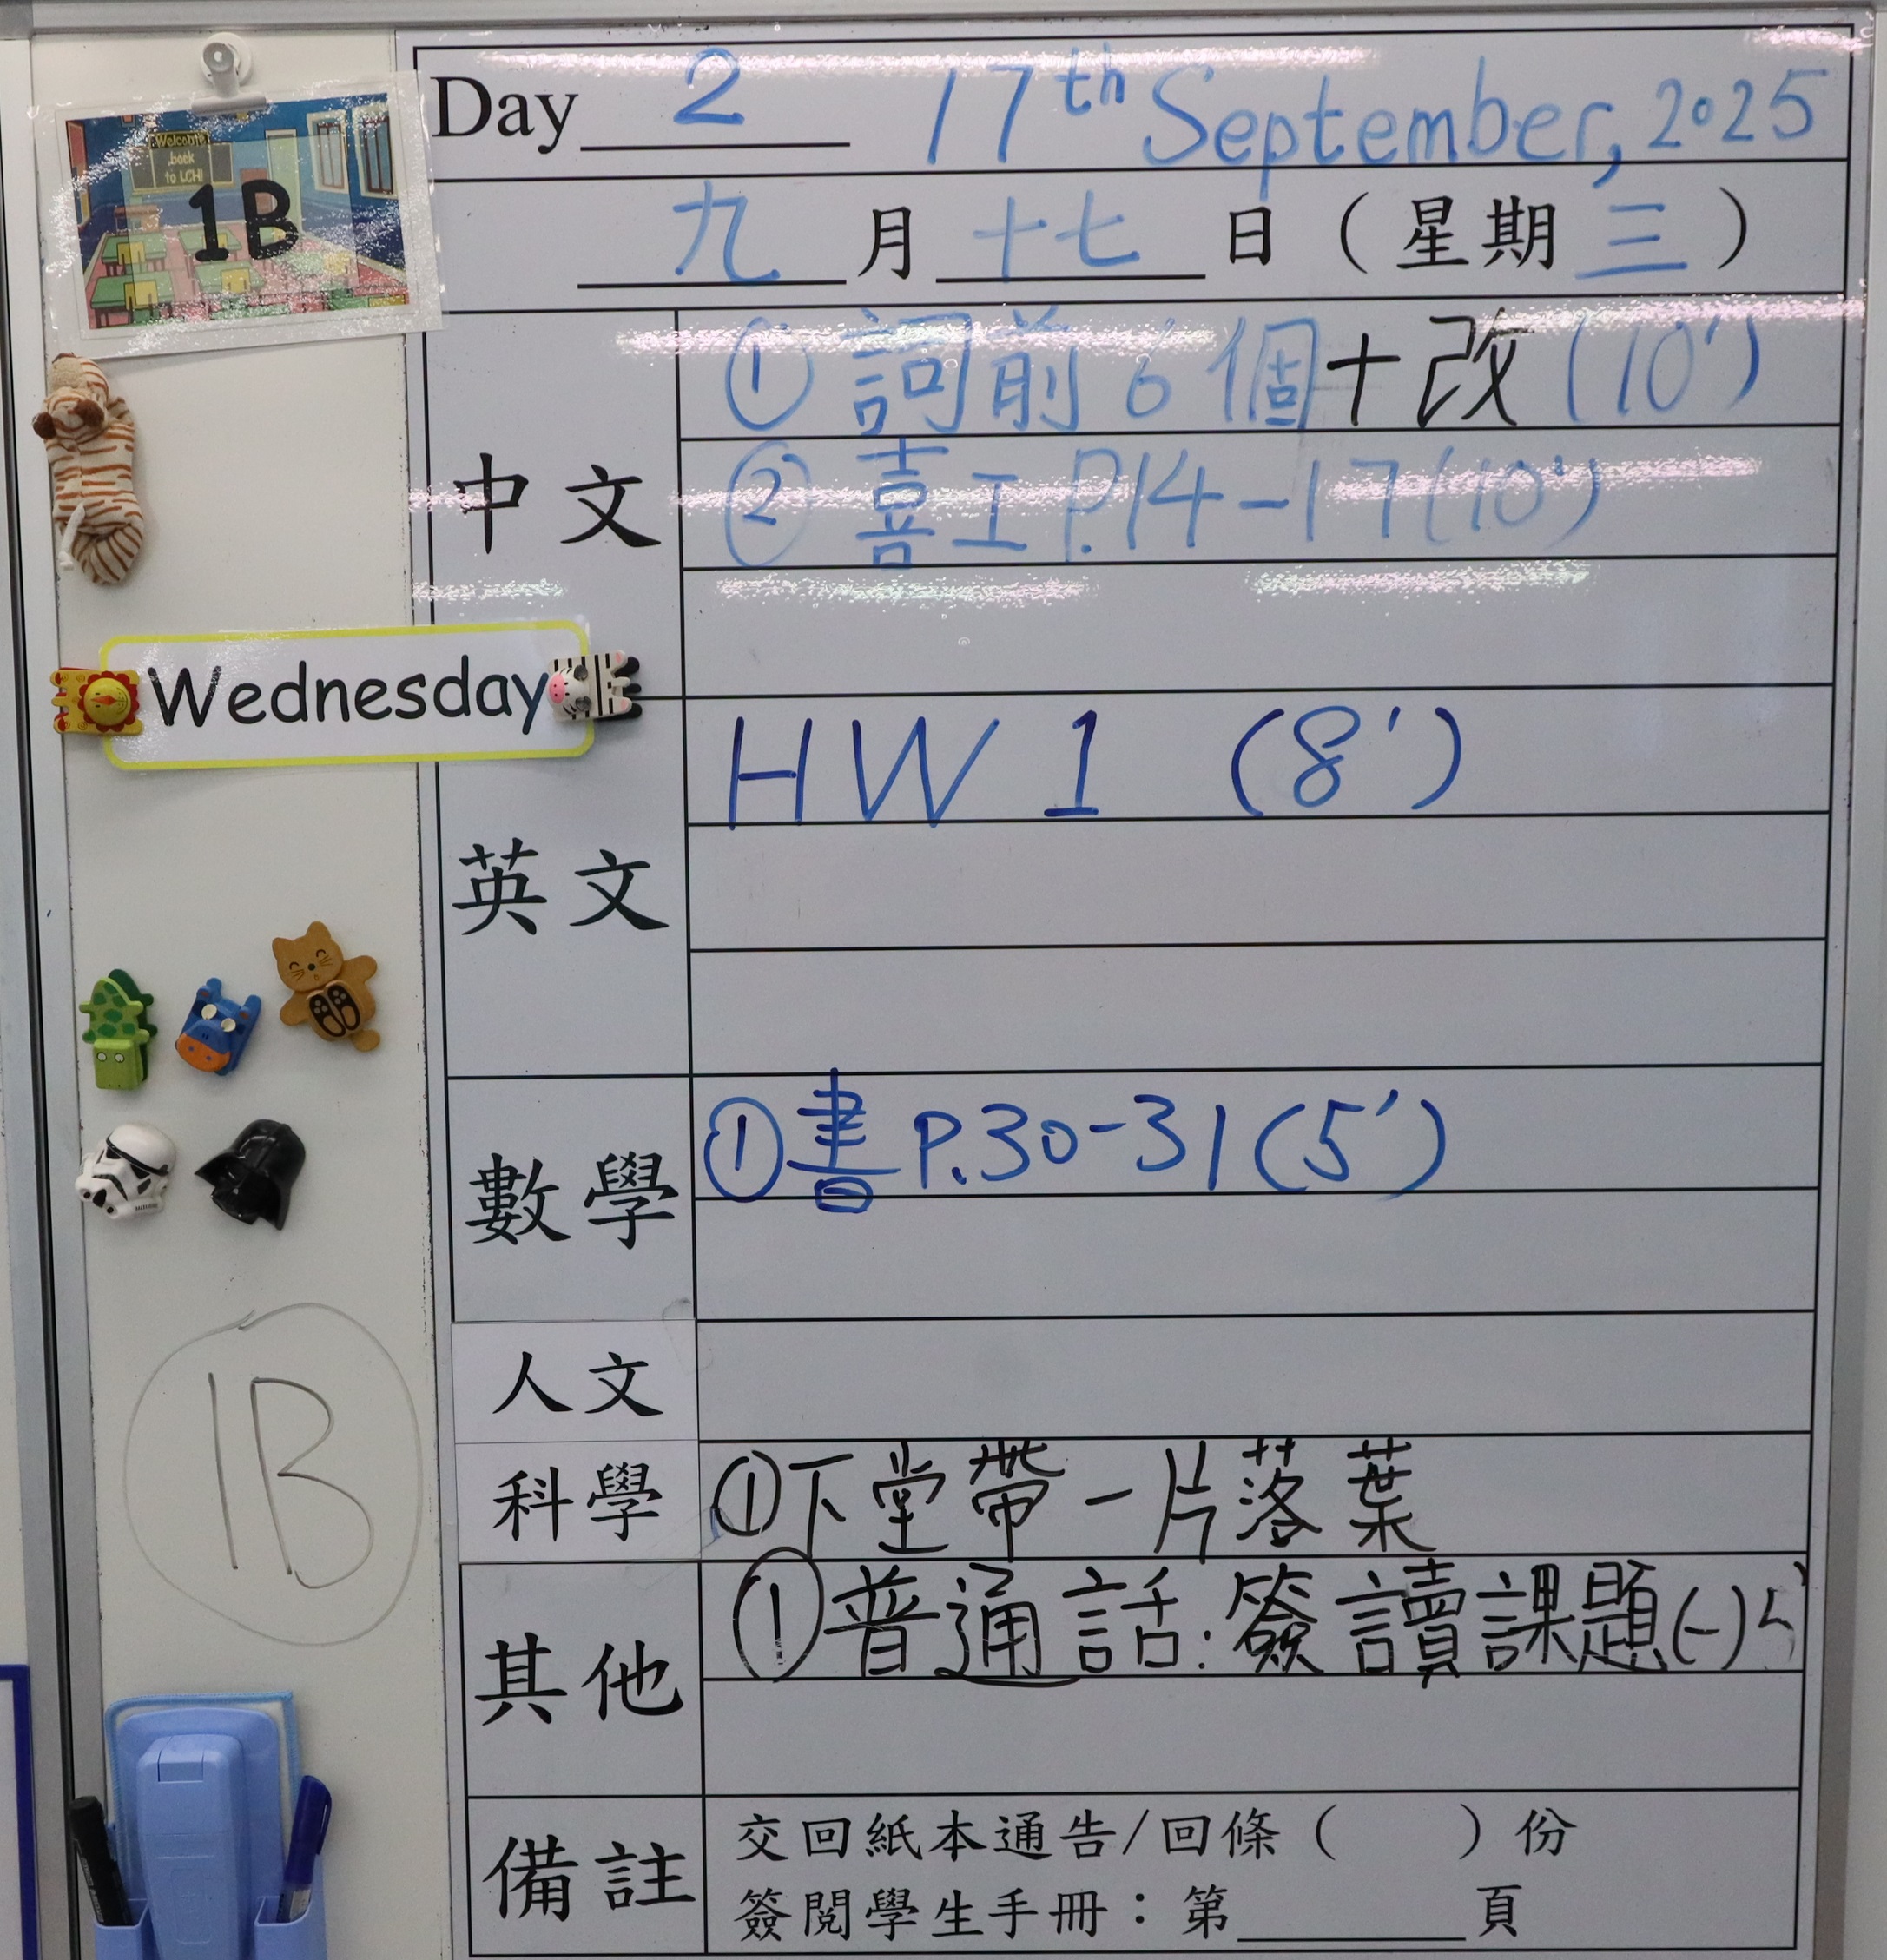 Day 2 17th September, 2025
Welcome
back
to LCH!
1B
九月十七日（星期三）
中文
①詞前6個+改(10')
②喜工P.14-17(10')
Wednesday
英文
HW 1 (8')
數學
①書P.30-31(5')
人文
1B
科學
①下堂帶一片落葉
其他
①普通話:簽讀課題(一)5'
備註
交回紙本通告/回條（ ）份
簽閱學生手冊：第____頁